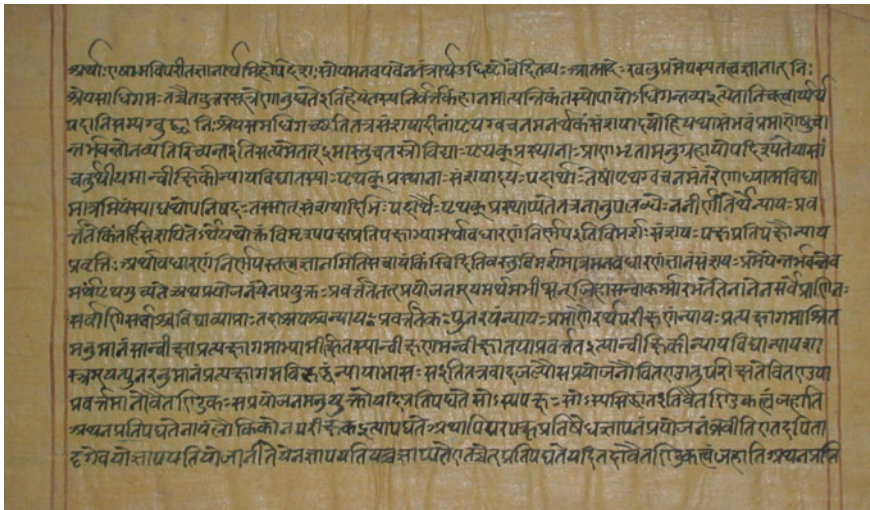 अर्थाः एषामविपरीतज्ञानार्थमिहोपदेशः सोयमनवयवेन तंत्रार्थउद्दिष्टो वेदितव्यः आत्मादेः खलु प्रमेयस्य तत्वज्ञानात् निः
श्रेयसाधिगमः तच्चैतदुत्तरसूत्रेणानूद्यते इति हेयं तस्य निर्वर्तकं हानमात्यन्तिकं तस्योपायोऽधिगन्तव्य इत्येतानि चत्वार्यर्थ
पदानि सम्यग्बुद्ध्वा निःश्रेयसमधिगच्छति तत्र संशयादीनां पृथग्वचनमनर्थकं संशयादयो हि यथासंभवं प्रमाणेषु वा
न्तर्भवन्तो न व्यतिरिच्यन्त इति सत्यमेतत् इमास्तु चतस्रो विद्याः पृथक्प्रस्थानाः प्राणभृतामनुग्रहायोपदिश्यंते यासां
चतुर्थीयमान्वीक्षिकी न्यायविद्या तस्याः पृथक्प्रस्थानाः संशयादयः पदार्थाः तेषां पृथग्वचनमंतरेणाध्यात्मविद्या
मात्रमियं स्याद्यथोपनिषदः तस्मात् संशयादिभिः पदार्थैः पृथक् प्रस्थाप्यते तत्र नानुपलब्धे न निर्णीतेर्थे न्यायः प्रव
र्त्तते किं तर्हि संशयितेऽर्थे यथोक्तं विमृश्य पक्षप्रतिपक्षाभ्यामर्थावधारणं निर्णय इति विमर्शः संशयः पक्षप्रतिपक्षौ न्याय
प्रवृत्तिः अर्थावधारणं निर्णयस्तत्वज्ञानमिति स चायं किं स्विदिति वस्तुविमर्शमात्रमनवधारणं ज्ञानं संशयः प्रमेयेन्तर्भवन्नेव
मर्थं पृथगुच्यते अथ प्रयोजनं येन प्रयुक्तः प्रवर्त्तते तत् प्रयोजनम् यमर्थमभीप्सन् जिहासन्वा कर्मारभते तेनानेन सर्वे प्राणिनः
सर्वाणि कर्माणि सर्वाश्च विद्या व्याप्ताः तदाश्रयश्च न्यायः प्रवर्त्तते कः पुनरयं न्यायः प्रमाणैरर्थपरीक्षणं न्यायः प्रत्यक्षागमाश्रित
मनुमानं सान्वीक्षा प्रत्यक्षागमाभ्यामीक्षितस्यान्वीक्षणमन्वीक्षा तया प्रवर्त्तत इत्यान्वीक्षिकी न्यायविद्या न्यायशा
स्त्रम् यत्पुनरनुमानं प्रत्यक्षागमविरुद्धं न्यायाभासः स इति तत्र वादजल्पौ सप्रयोजनौ वितण्डा तु परीक्ष्यते वितण्डया
प्रवर्त्तमानो वैतण्डिकः स प्रयोजनमनुयुक्तो यदि प्रतिपद्यते सोऽस्य पक्षः सोऽस्य सिद्धान्त इति वैतण्डिकत्वं जहाति
अथ न प्रतिपद्यते नायं लौकिको न परीक्षक इत्यापद्यते अथापि परपक्षप्रतिषेधज्ञापनं प्रयोजनं ब्रवीति एतदपि ता
दृगेव यो ज्ञापयति यो जानाति येन ज्ञापयति यच्च ज्ञाप्यते एतच्चेत् प्रतिपद्यते यदि तदा वैतण्डिकत्वं जहाति अथ न प्रति